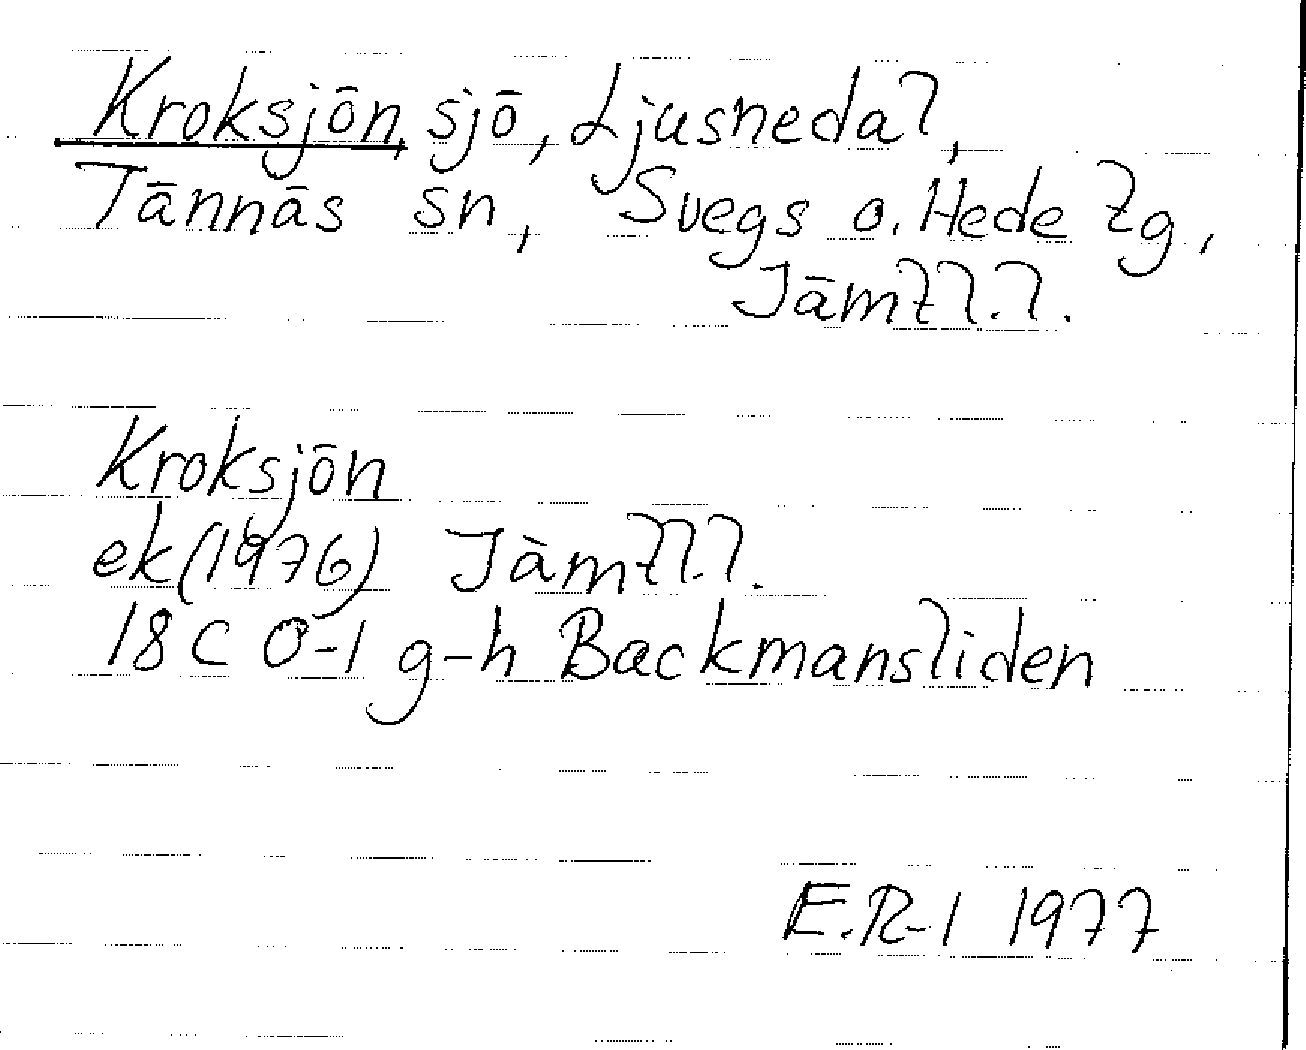 Kroksjön, sjö, Ljusnedal,
Tännäs sn, Svegs o. Hede tg,
Jämtl.l.
Kroksjön
ek(1976) Jämtl.l.
18C 0-1 g-h Backmansliden
E.R-l 1977